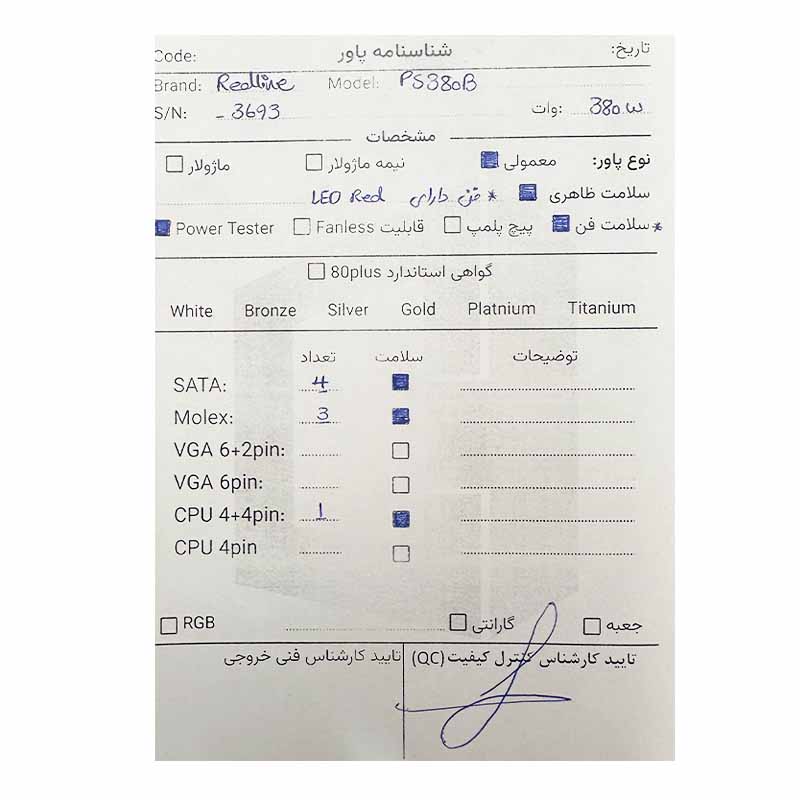 Code: شناسنامه پاور تاریخ:
Brand: Redline Model: PS380B
S/N: - 3693 وات: 380 W
مشخصات
نوع پاور: معمولی نیمه ماژولار ماژولار
سلامت ظاهری * فن دارای LED Red
*سلامت فن پیچ پلمپ قابلیت Fanless Power Tester
گواهی استاندارد 80plus
White Bronze Silver Gold Platnium Titanium
تعداد سلامت توضیحات
SATA: 4
Molex: 3
VGA 6+2pin:
VGA 6pin:
CPU 4+4pin: 1
CPU 4pin
RGB گارانتی جعبه
تایید کارشناس کنترل کیفیت (QC) تایید کارشناس فنی خروجی